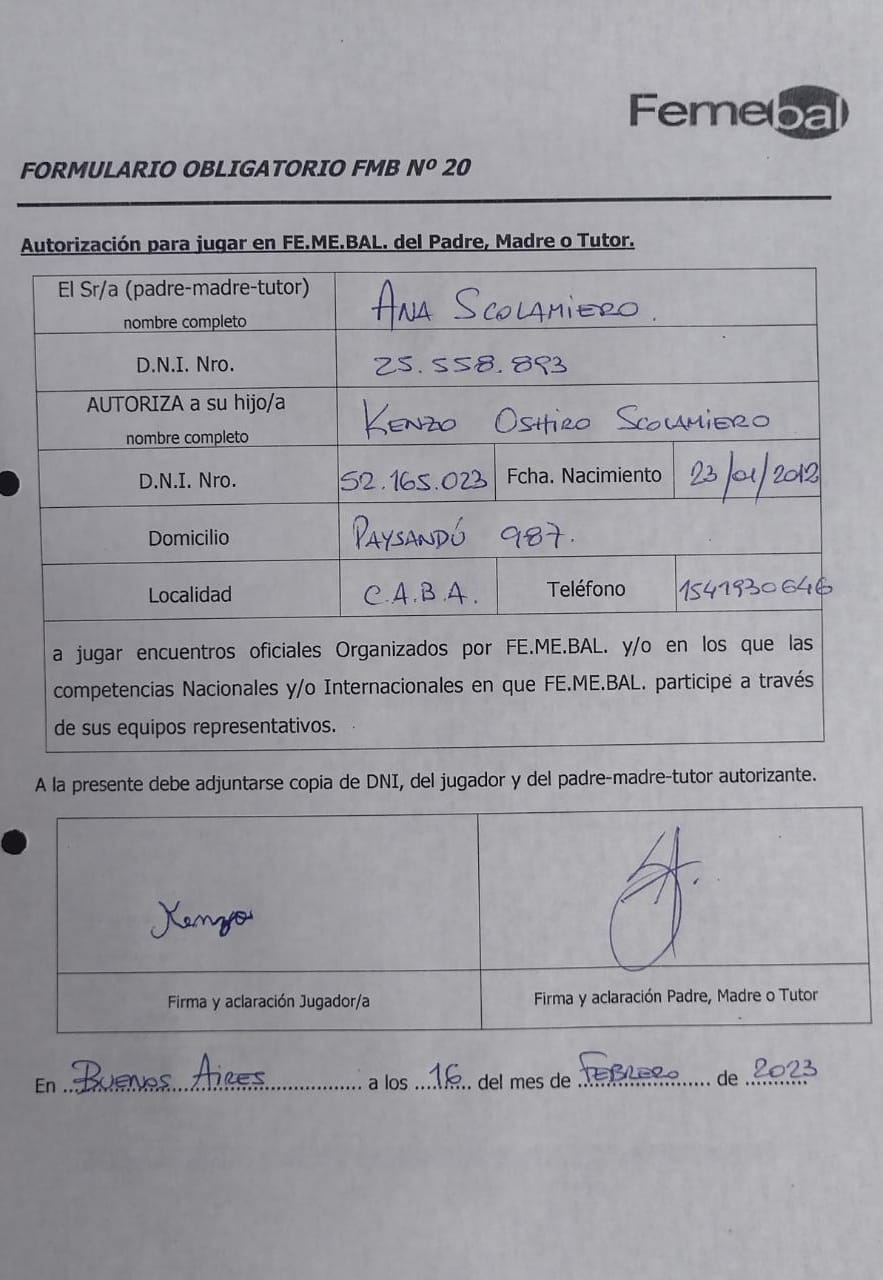 Femebal
FORMULARIO OBLIGATORIO FMB Nº 20
Autorización para jugar en FE.ME.BAL. del Padre, Madre o Tutor.
El Sr/a (padre-madre-tutor)
nombre completo
ANA SCOLAMIERO.
D.N.I. Nro.
25.558.893
AUTORIZA a su hijo/a
nombre completo
KENZO OSHIRO SCOLAMIERO
D.N.I. Nro.
52.165.023
Fcha. Nacimiento
23/01/2012
Domicilio
PAYSANDÚ 987.
Localidad
C.A.B.A.
Teléfono
1541930646
a jugar encuentros oficiales Organizados por FE.ME.BAL. y/o en los que las
competencias Nacionales y/o Internacionales en que FE.ME.BAL. participe a través
de sus equipos representativos.
A la presente debe adjuntarse copia de DNI, del jugador y del padre-madre-tutor autorizante.
Kenzo
Firma y aclaración Jugador/a
Firma y aclaración Padre, Madre o Tutor
En BUENOS AIRES a los 16 del mes de FEBRERO de 2023